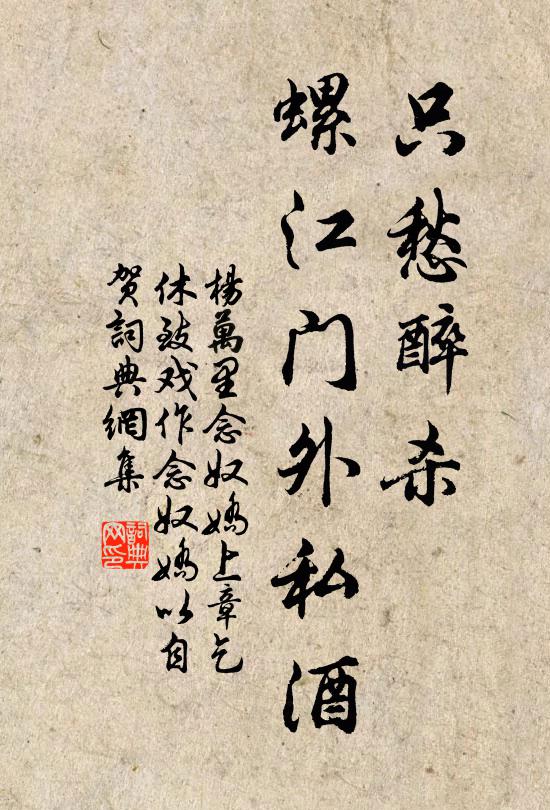 只愁醉杀
螺江门外私酒
楊萬里念奴嬌上章乞
休致戏作念奴嬌以自
贺詞典網集
詞典网印